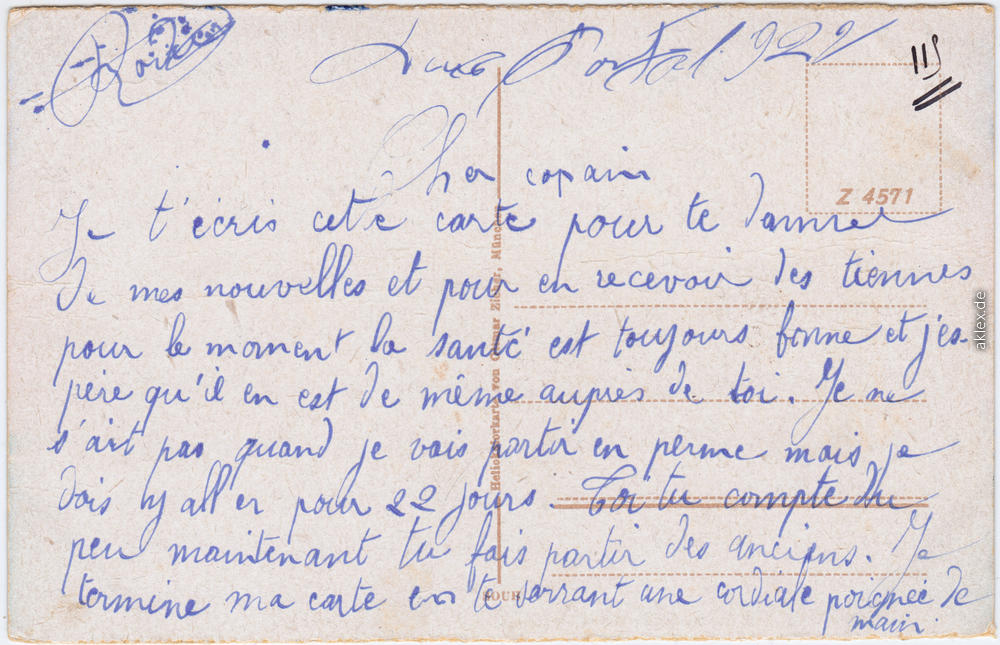 115
Z 4571
Cher copain
Je t'écris cette carte pour te donner
de mes nouvelles et pour en recevoir des tiennes
pour le moment la santé est toujours bonne et j'es-
père qu'il en est de même auprès de toi. Je ne
s'ait pas quand je vais partir en perme mais je
dois y aller pour 22 jours. Toi tu compte du
peu maintenant tu fais partir des anciens. Je
termine ma carte en te serrant une cordiale poignée de
main.
Heliocolorkarte von Ottmar Zieher, München
aklex.de